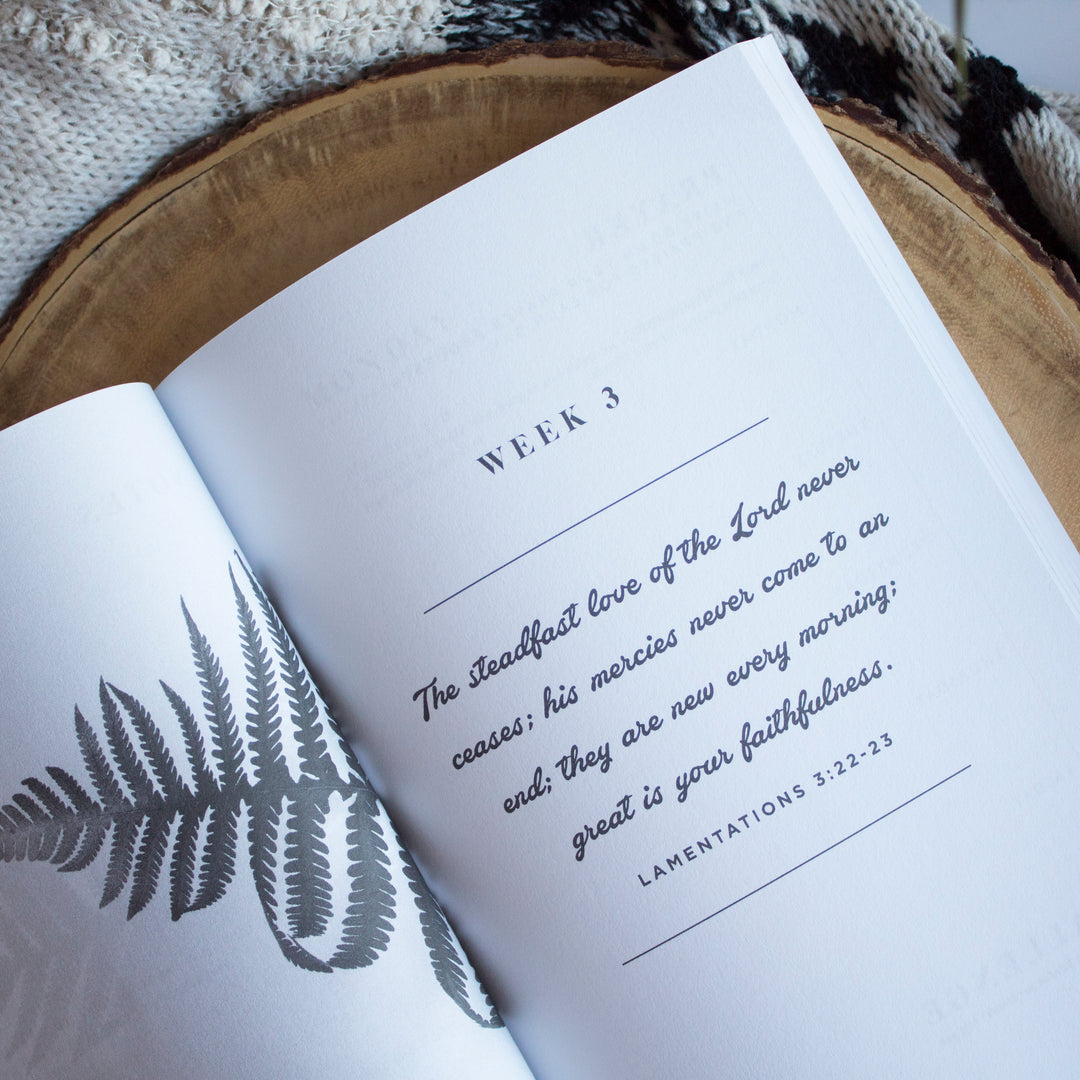 WEEK 3
The steadfast love of the Lord never
ceases; his mercies never come to an
end; they are new every morning;
great is your faithfulness.
LAMENTATIONS 3:22-23